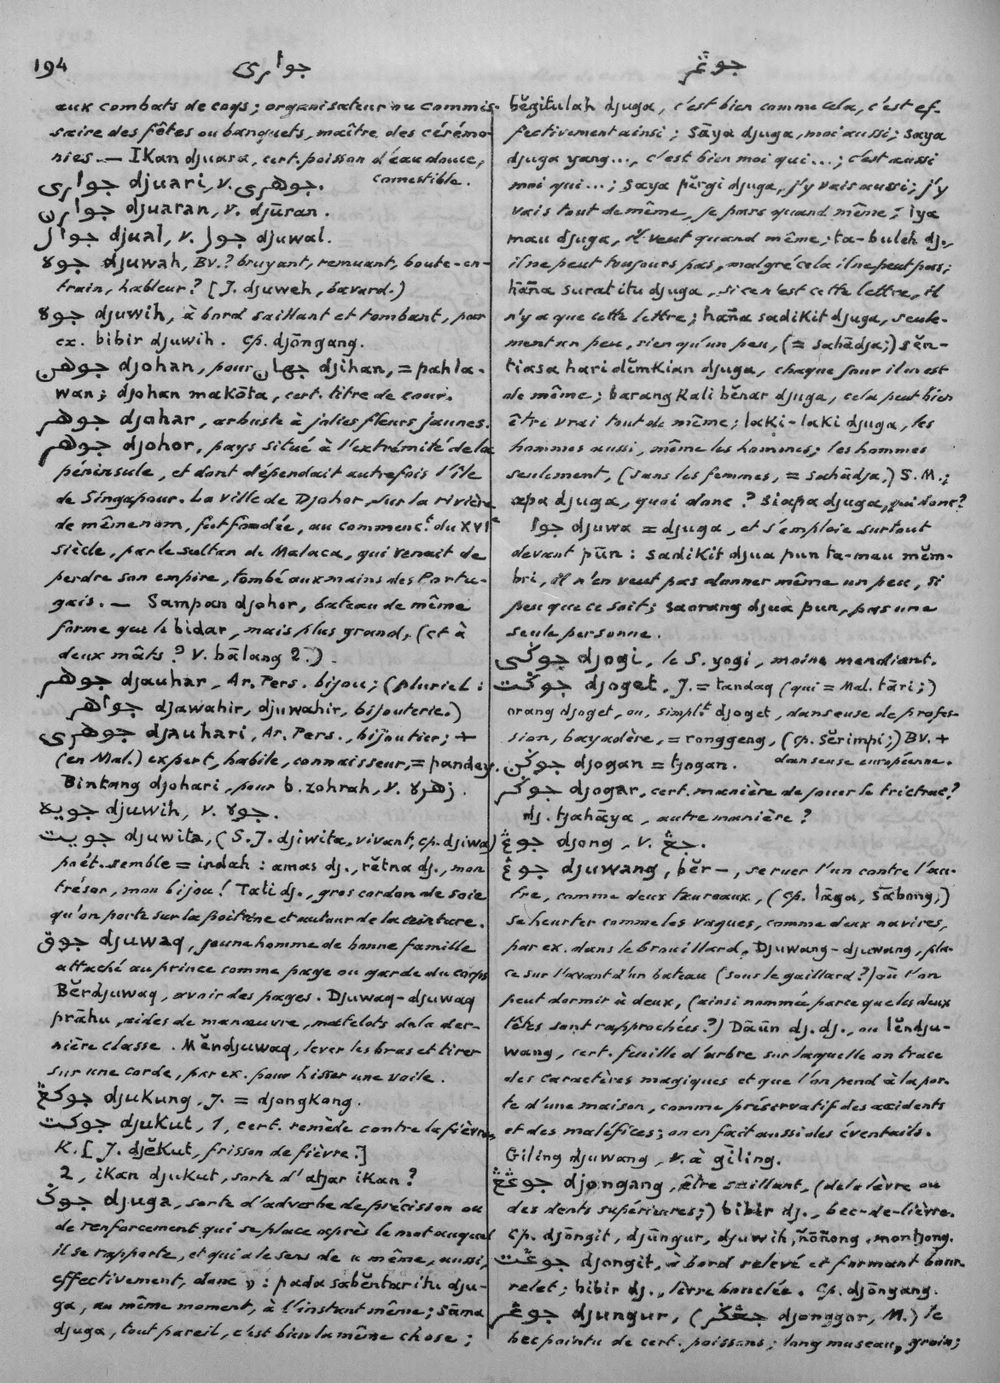 194
جواري
جوڠر
aux combats de coqs; organisateur ou commis-
saire des fêtes ou banquets, maître des cérémo-
nies. — Ikan djuara, cert. poisson d'eau douce,
comestible.
جواري djuari, v. جوهري.
جوارن djuaran, v. djūran.
جوال djual, v. جول djuwal.
جوه djuwah, Bv.? bruyant, remuant, boute-en-
train, hableur? [J. djuweh, bavard.)
جوه djuwih, à bord saillant et tombant, par
ex. bibir djuwih. Cp. djōngang.
جوهن djohan, pour جهان djihan, = pahla-
wan; djohan makōta, cert. titre de cour.
جوهر djohar, arbuste à jolies fleurs jaunes.
جوهر djohor, pays situé à l'extrémité de la
péninsule, et dont dépendait autrefois l'île
de Singapour. La ville de Djohor, sur la rivière
de même nom, fut fondée, au commenct. du XVIe
siècle, par le sultan de Malaca, qui venait de
perdre son empire, tombé aux mains des Portu-
gais. — Sampan djohor, bateau de même
forme que le bidar, mais plus grand, (et à
deux mâts? V. bālang 2.)
جوهر djauhar, Ar. Pers. bijou; (pluriel:
جواهر djawahir, djuwahir, bijouterie.)
جوهري djauhari, Ar. Pers., bijoutier; +
(en Mal.) expert, habile, connaisseur, = pandey.
Bintang djohari, pour b. zohrah, v. زهره.
جويه djuwih, v. جوه.
جويت djuwita, (S. J. djiwita, vivant, cp. djiwa)
poét. semble = indah: amas dj., rĕtna dj., mon
trésor, mon bijou! Tali dj., gros cordon de soie
qu'on porte sur la poitrine et autour de la ceinture.
جوق djuwaq, jeune homme de bonne famille
attaché au prince comme page ou garde du corps
Bĕrdjuwaq, avoir des pages. Djuwaq-djuwaq
prāhu, aides de manœuvre, matelots de la der-
nière classe. Mĕndjuwaq, lever les bras et tirer
sur une corde, par ex. pour hisser une voile.
جوكڠ djukung, J. = djongkong.
جوكت djukut, 1, cert. remède contre la fièvre,
K. [J. djĕkut, frisson de fièvre.]
2, ikan djukut, sorte d'atjar ikan?
جوݢ djuga, sorte d'adverbe de précision ou
de renforcement qui se place après le mot auquel
il se rapporte, et qui a le sens de « même, aussi,
effectivement, donc »: pada sabĕntar itu dju-
ga, au même moment, à l'instant même; Sāma
djuga, tout pareil, c'est bien la même chose;
bĕgitulah djuga, c'est bien comme cela, c'est ef-
fectivement ainsi; Sāya djuga, moi aussi; saya
djuga yang..., c'est bien moi qui...; c'est aussi
moi qui...; saya pĕrgi djuga, j'y vais aussi; j'y
vais tout de même, je pars quand même; iya
mau djuga, il veut quand même; ta-buleh dj.,
il ne peut toujours pas, malgré cela il ne peut pas;
hāña surat itu djuga, si ce n'est cette lettre, il
n'y a que cette lettre; hāña sadikit djuga, seule-
ment un peu, rien qu'un peu, (= sahādja;) sĕn-
tiasa hari dĕmkian djuga, chaque jour il en est
de même; barangkali bĕnar djuga, cela peut bien
être vrai tout de même; laki-laki djuga, les
hommes aussi, même les hommes; les hommes
seulement, (sans les femmes, = sahādja,) S. M.;
apa djuga, quoi donc? siapa djuga, qui donc?
جوا djuwa = djuga, et s'emploie surtout
devant pūn: sadikit djua pun ta-mau mĕm-
bri, il n'en veut pas donner même un peu, si
peu que ce soit; saorang djua pun, pas une
seule personne.
جوݢي djogi, le S. yogi, moine mendiant.
جوݢت djoget, J. = tandaq (qui = Mal. tāri;)
orang djoget, ou, simplt. djoget, danseuse de profes-
sion, bayadère, = ronggeng, (cp. sĕrimpi;) Bv. +
danseuse européenne.
جوݢن djogan = tjogan.
جوݢر djogar, cert. manière de jouer le trictrac?
dj. tjahāya, autre manière?
جوڠ djong, v. جڠ.
جوڠ djuwang, bĕr—, se ruer l'un contre l'au-
tre, comme deux taureaux, (cp. lāga, sābong,)
se heurter comme les vagues, comme deux navires,
par ex. dans le brouillard. Djuwang-djuwang, pla-
ce sur l'avant d'un bateau (sous le gaillard?) où l'on
peut dormir à deux, (ainsi nommée parce que les deux
têtes sont rapprochées?) Dāün dj. dj., ou lĕndju-
wang, cert. feuille d'arbre sur laquelle on trace
des caractères magiques et que l'on pend à la por-
te d'une maison, comme préservatif des accidents
et des maléfices; on en fait aussi des éventails.
Giling djuwang, v. à gīling.
جوڠڠ djongang, être saillant, (de la lèvre ou
des dents supérieures;) bibir dj., bec-de-lièvre.
Cp. djōngit, djūngur, djuwih, ñoñong, montjong.
جوڠت djongit, à bord relevé et formant bour-
relet; bibir dj., lèvre bouclée. Cp. djōngang.
جوڠر djungur, (جڠݢر djonggor, M.) le
bec pointu de cert. poissons; long museau, groin;